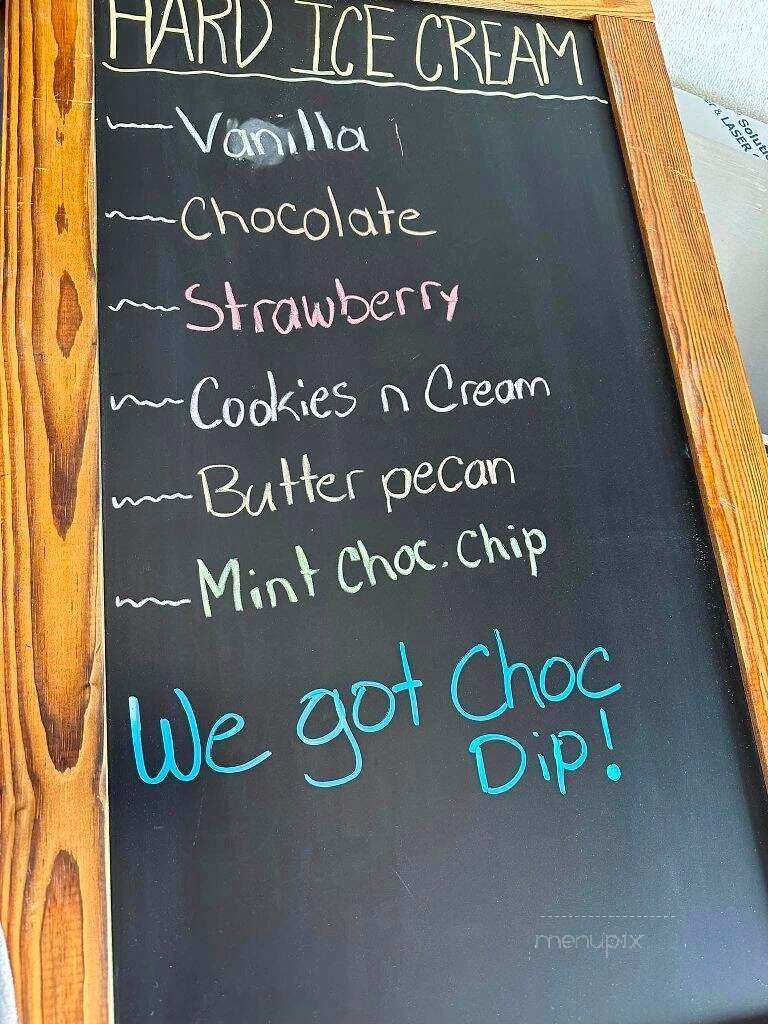 HARD ICE CREAM
Vanilla
Chocolate
Strawberry
Cookies n Cream
Butter pecan
Mint Choc. Chip
We got Choc
Dip!
& LASER
menupix